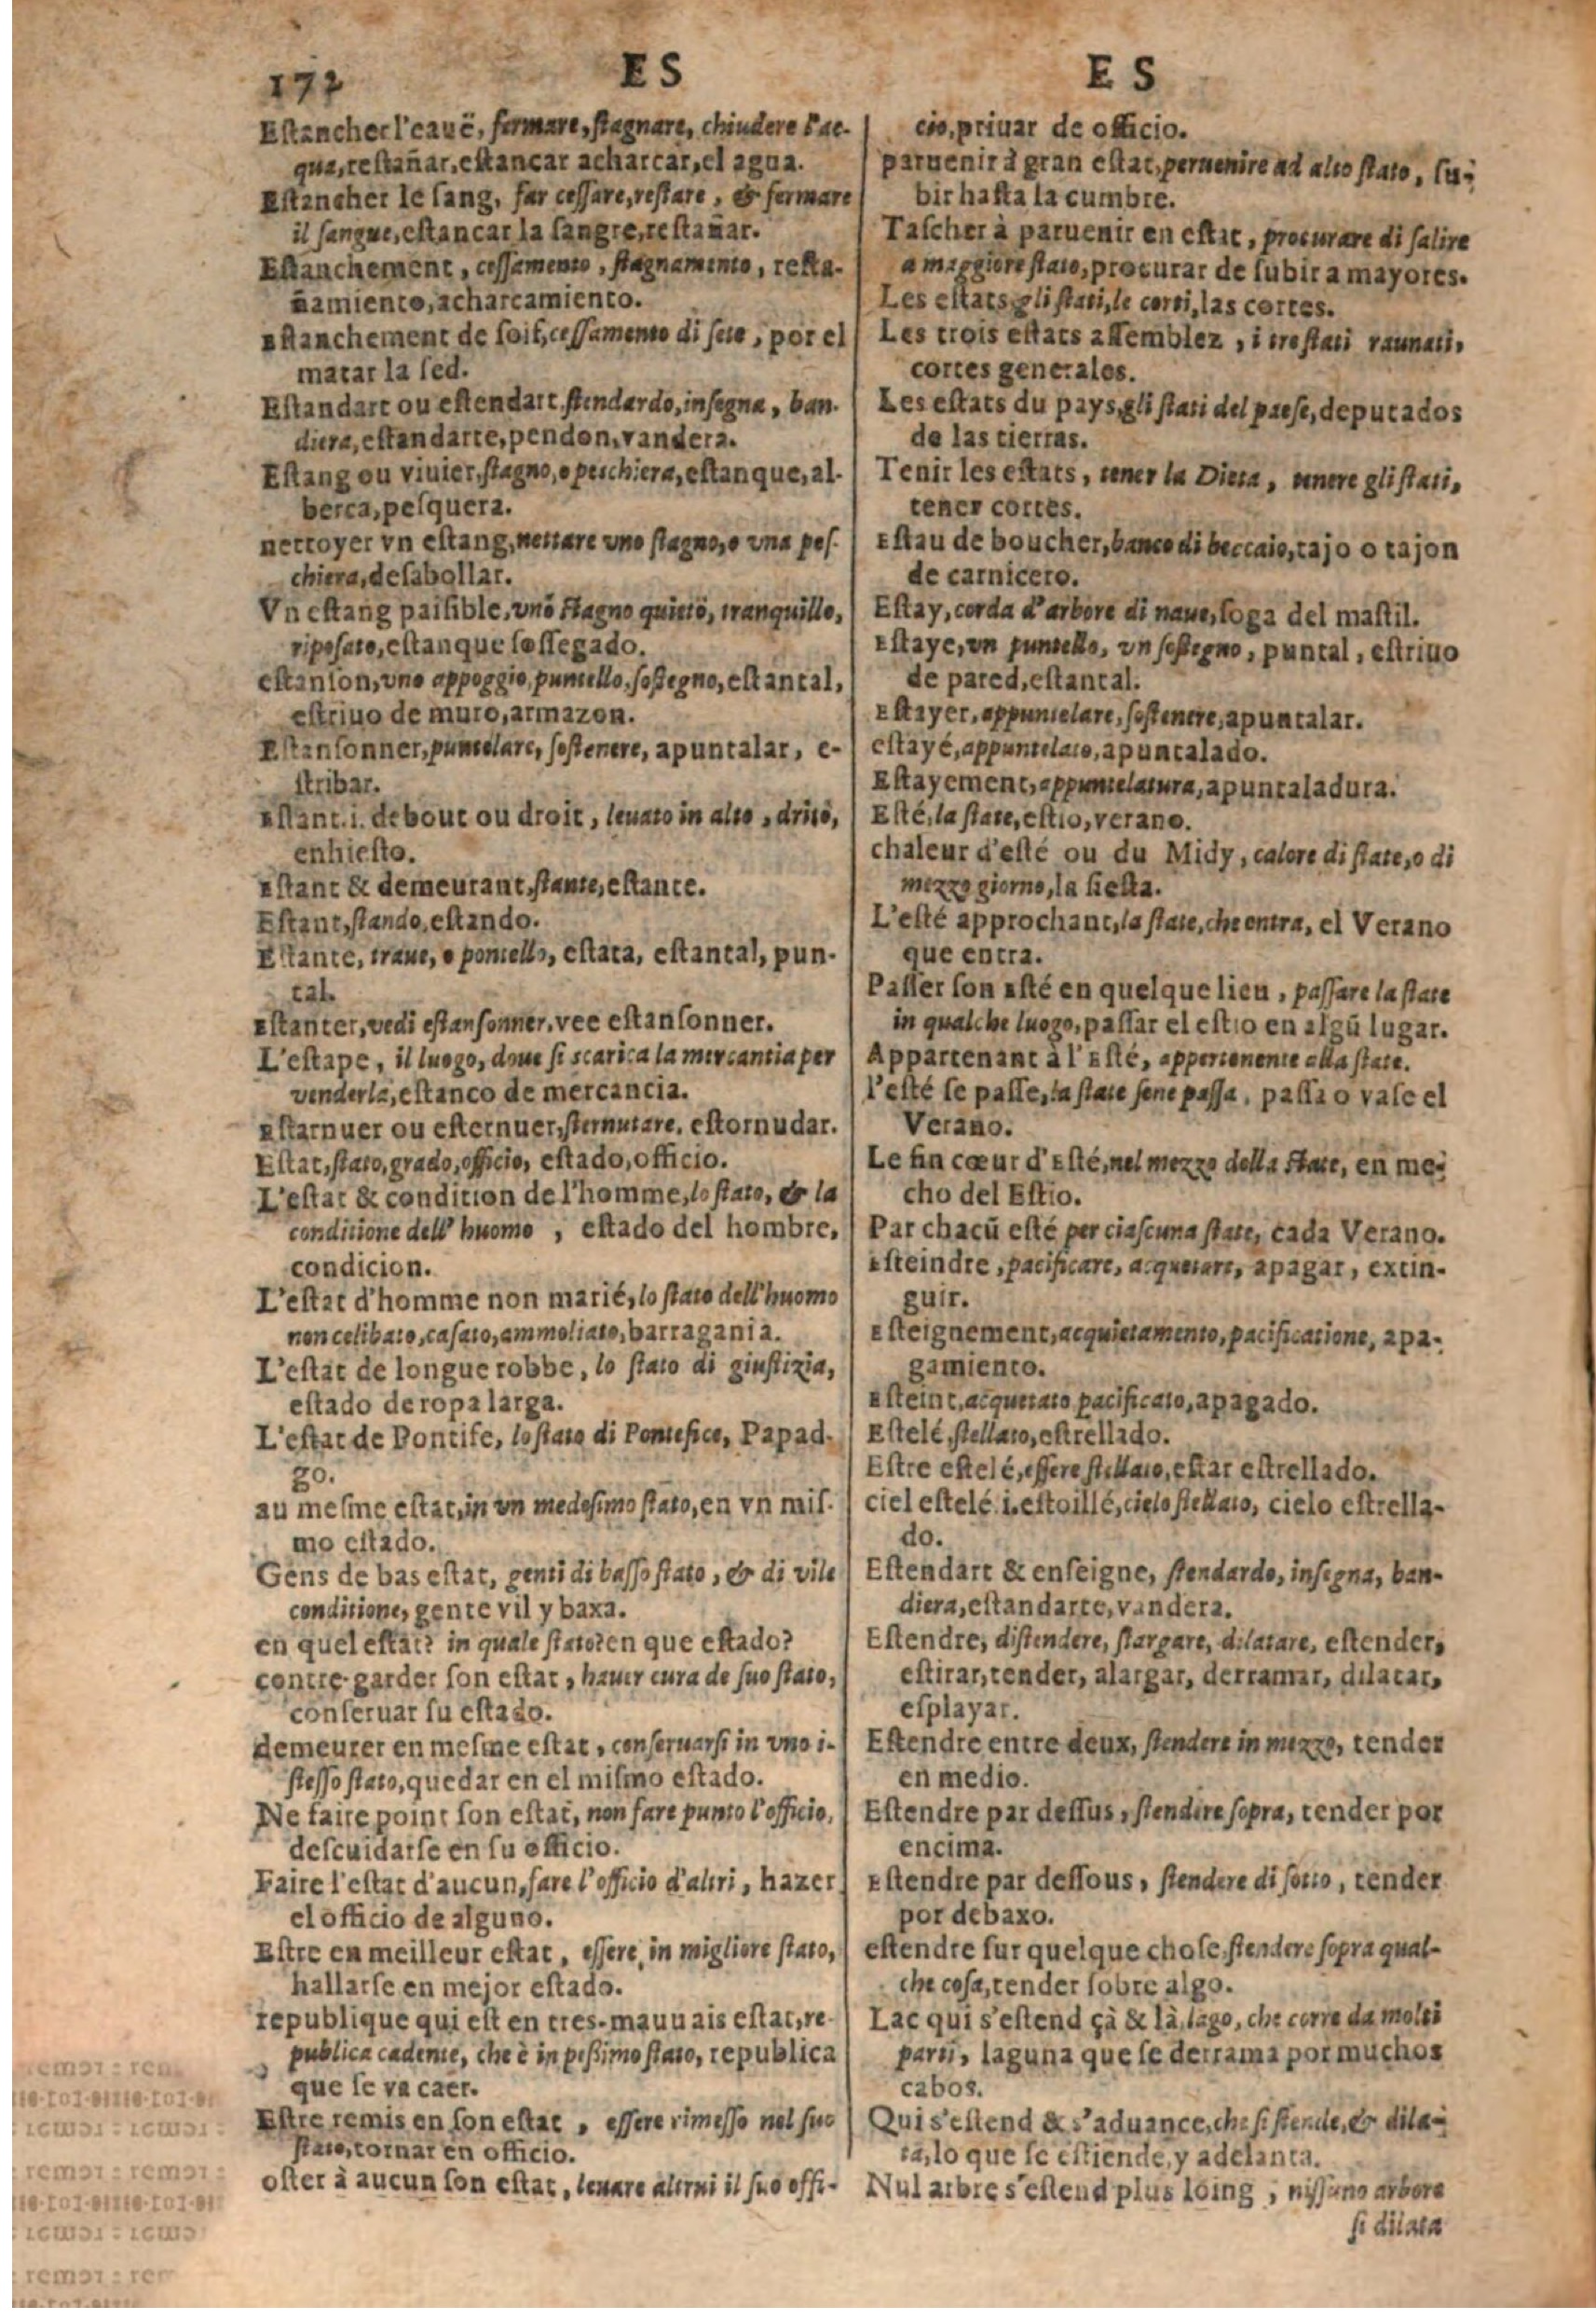 172
E S
E S
Estancher l'eauë, fermare, stagnare, chiudere l'ac-
qua, restañar, estancar acharcar, el agua.
Estancher le sang, far cessare, restare, & fermare
il sangue, estancar la sangre, restañar.
Estanchement, cessamento, stagnamento, resta-
ñamiento, acharcamiento.
Estanchement de soif, cessamento di sete, por el
matar la sed.
Estandart ou estendart, stendardo, insegna, ban-
diera, estandarte, pendon, vandera.
Estang ou viuier, stagno, o peschiera, estanque, al-
berca, pesquera.
nettoyer vn estang, nettare vno stagno, o vna pes-
chiera, desabollar.
Vn estang paisible, vno stagno quieto, tranquillo,
riposato, estanque sossegado.
estanson, vno appoggio, puntello, sostegno, estantal,
estriuo de muro, armazon.
Estansonner, puntelare, sostenere, apuntalar, e-
stribar.
Estant. i. debout ou droit, leuato in alto, drito,
enhiesto.
Estant & demeurant, stante, estante.
Estant, stando, estando.
Estante, traue, o pontello, estaca, estantal, pun-
tal.
Estanter, vedi estansonner, vee estansonner.
L'estape, il luogo, doue si scarica la mercantia per
venderla, estanco de mercancia.
Estarnuer ou esternuer, sternutare, estornudar.
Estat, stato, grado, officio, estado, officio.
L'estat & condition de l'homme, lo stato, & la
conditione dell' huomo, estado del hombre,
condicion.
L'estat d'homme non marié, lo stato dell'huomo
non celibato, casato, ammoliato, barragania.
L'estat de longue robbe, lo stato di giustizia,
estado de ropa larga.
L'estat de Pontife, lo stato di Pontefice, Papad-
go.
au mesme estat, in vn medesimo stato, en vn mis-
mo estado.
Gens de bas estat, genti di basso stato, & di vile
conditione, gente vil y baxa.
en quel estat? in quale stato? en que estado?
contre-garder son estat, hauer cura de suo stato,
conseruar su estado.
demeurer en mesme estat, conseruarsi in vno i-
stesso stato, quedar en el mismo estado.
Ne faire point son estat, non fare punto l'officio,
descuidarse en su officio.
Faire l'estat d'aucun, fare l'officio d'altri, hazer
el officio de alguno.
Estre en meilleur estat, essere in migliore stato,
hallarse en mejor estado.
republique qui est en tres-mauuais estat, re-
publica cadente, che è in pessimo stato, republica
que se va caer.
Estre remis en son estat, essere rimesso nel suo
stato, tornar en officio.
oster à aucun son estat, leuare altrui il suo offi-
cio, priuar de officio.
paruenir à gran estat, peruenire ad alto stato, su-
bir hasta la cumbre.
Tascher à paruenir en estat, procurare di salire
a maggiore stato, procurar de subir a mayores.
Les estats, gli stati, le corti, las cortes.
Les trois estats assemblez, i tre stati raunati,
cortes generales.
Les estats du pays, gli stati del paese, deputados
de las tierras.
Tenir les estats, tener la Dieta, tenere gli stati,
tener cortes.
Estau de boucher, banco di beccaio, tajo o tajon
de carnicero.
Estay, corda d'arbore di naue, soga del mastil.
Estaye, vn puntello, vn sostegno, puntal, estriuo
de pared, estantal.
Estayer, appuntelare, sostenere, apuntalar.
estayé, appuntelato, apuntalado.
Estayement, appuntelatura, apuntaladura.
Esté, la state, estio, verano.
chaleur d'esté ou du Midy, calore di state, o di
mezzo giorno, la siesta.
L'esté approchant, la state, che entra, el Verano
que entra.
Passer son Esté en quelque lieu, passare la state
in qualche luogo, passar el estio en algū lugar.
Appartenant à l'Esté, appertenente alla state.
l'esté se passe, la state sene passa, passa o vase el
Verano.
Le fin cœur d'Esté, nel mezzo della state, en me-
cho del Estio.
Par chacū esté per ciascuna state, cada Verano.
Esteindre, pacificare, acquetare, apagar, extin-
guir.
Esteignement, acquietamento, pacificatione, apa-
gamiento.
Esteint, acquetato pacificato, apagado.
Estelé, stellato, estrellado.
Estre estelé, essere stellato, estar estrellado.
ciel estelé. i. estoillé, cielo stellato, cielo estrella-
do.
Estendart & enseigne, stendardo, insegna, ban-
diera, estandarte, vandera.
Estendre, distendere, slargare, dilatare, estender,
estirar, tender, alargar, derramar, dilatar,
esplayar.
Estendre entre deux, stendere in mezzo, tender
en medio.
Estendre par dessus, stendere sopra, tender por
encima.
Estendre par dessous, stendere di sotto, tender
por debaxo.
estendre sur quelque chose, stendere sopra qual-
che cosa, tender sobre algo.
Lac qui s'estend çà & là, lago, che corre da molti
parti, laguna que se derrama por muchos
cabos.
Qui s'estend & s'aduance, che si stende, & dila-
ta, lo que se estiende, y adelanta.
Nul arbre s'estend plus loing, nissuno arbore
si dilata